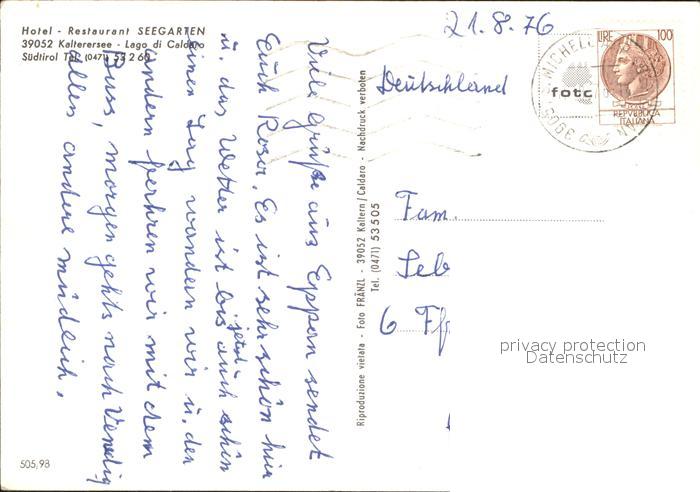 Hotel - Restaurant SEEGARTEN
39052 Kalterersee - Lago di Caldaro
Südtirol Tel. (0471) 53 2 60
Viele Grüße aus Eppan sendet
Euch Rosa. Es ist sehr schön hier
u. das Wetter ist bis jetzt auch schön
einen Tag wandern wir u. den
andern fahren wir mit dem
Buss, morgen gehts nach Venedig
alles andere müdlich.
505,98
Riproduzione vietata - Foto FRÄNZL - 39052 Kaltern/Caldaro - Nachdruck verboten
Tel. (0471) 53505
21.8.76
Deutschland
fotc
LIRE 100
REPVBBLICA
ITALIANA
Fam.
6
privacy protection
Datenschutz